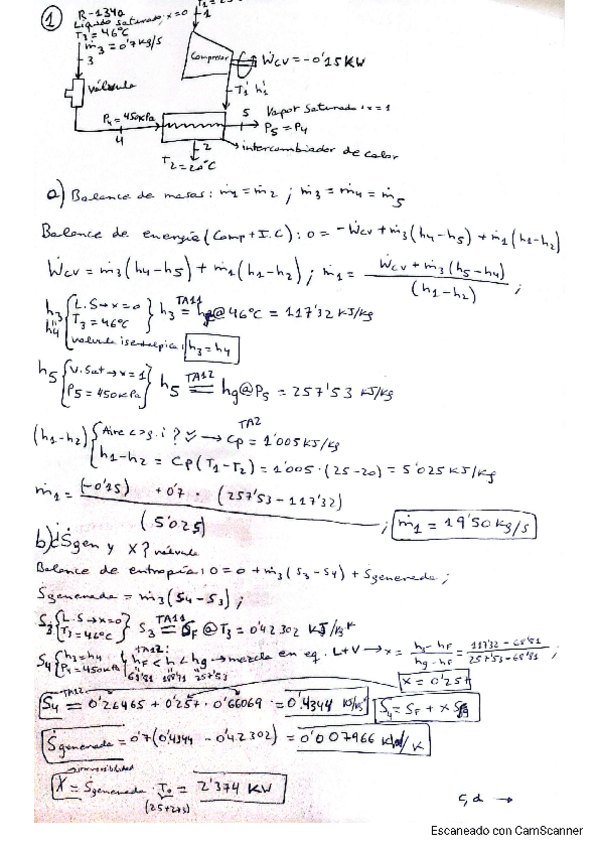 1 R-134a
Líquido saturado, x=0
T₃=46°C
ṁ₃=0'7kg/s
T₁=25°C
1
3
Compresor
Ẇcv=-0'15KW
válvula
T₁' h₁'
P₄=450kPa
4
5
Vapor Saturado x=1
P₅=P₄
2
intercambiador de calor
T₂=20°C
a) Balance de masas: ṁ₁=ṁ₂ ; ṁ₃=ṁ₄=ṁ₅
Balance de energía (Comp+I.C): 0=-Ẇcv+ṁ₃(h₄-h₅)+ṁ₁(h₁-h₂)
Ẇcv=ṁ₃(h₄-h₅)+ṁ₁(h₁-h₂) ; ṁ₁= Ẇcv+ṁ₃(h₅-h₄) / (h₁-h₂) ;
h₃ h₄ { L.S→x=0
T₃=46°C
válvula isentálpica: h₃=h₄
} h₃ TA11 = hf@46°C = 117'32 KJ/kg
h₅ { V.Sat→x=1
P₅=450kPa
} h₅ TA12 = hg@P₅ = 257'53 KJ/kg
(h₁-h₂) { Aire g.i ? ✓ → TA2 Cp=1'005KJ/kg
h₁-h₂=Cp(T₁-T₂)=1'005·(25-20)=5'025KJ/kg
ṁ₁= (-0'15)+0'7·(257'53-117'32) / (5'025) ; ṁ₁=19'50kg/s
b) ¿Ṡgen y X? válvula
Balance de entropía: 0=0+ṁ₃(s₃-s₄)+Ṡgenerada ;
Ṡgenerada=ṁ₃(s₄-s₃) ;
S₃ { L.S→x=0
T₃=46°C
} S₃ TA11 = SF@T₃=0'42302 KJ/kg K
S₄ { h₃=h₄
P₄=450kPa
} TA12: hF<h<hg → mezcla en eq. L+V → x= h₄-hF / hg-hF = 117'32-68'81 / 257'53-68'81 ;
68'81 257'53
x=0'257
S₄ TA12 = 0'26465+0'257·0'66069=0'4344 | S₄=SF+xSfg
Ṡgenerada=0'7(0'4344-0'42302)=0'007966
irreversibilidad
Ẋ=Ṡgenerada·T₀=2'374 KW
(25+273)
c,d →
Escaneado con CamScanner